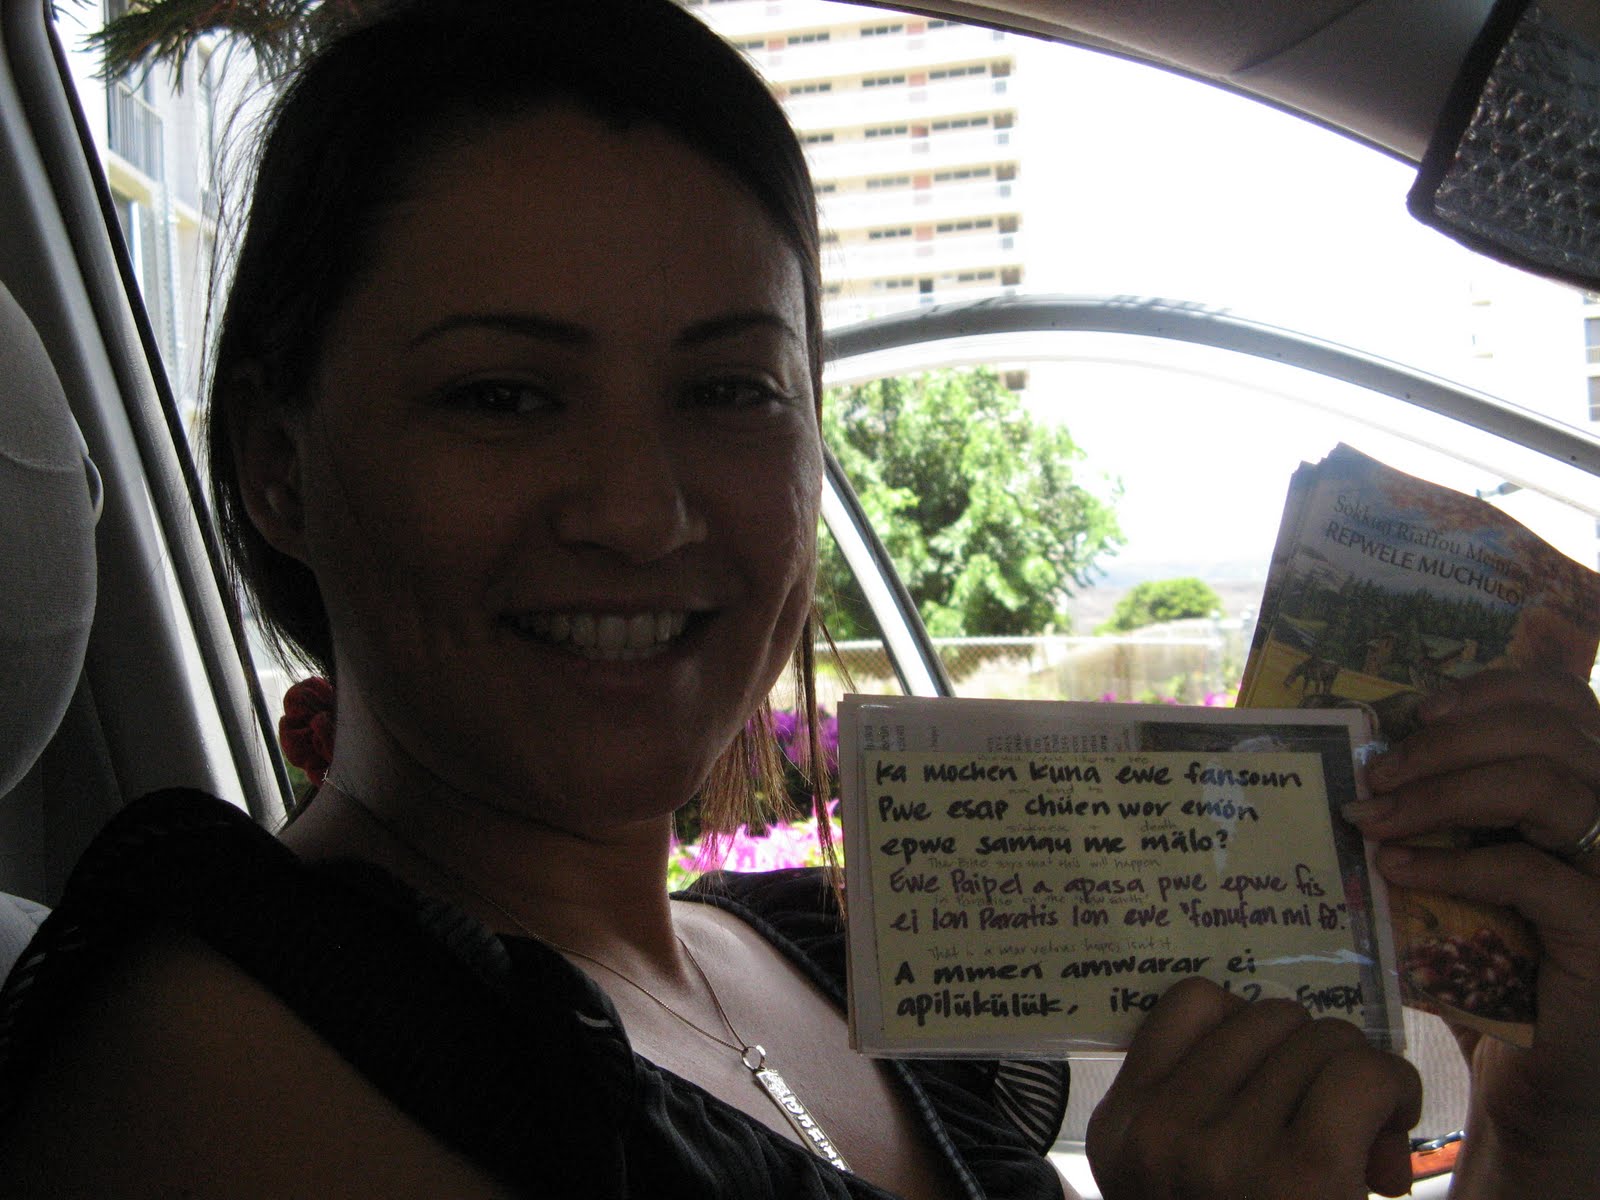 Sokkun Riaffou Meinisin
REPWELE MUCHULO!
Ka mochen kuna ewe fansoun
an end to
Pwe esap chüen wor emön
sickness + death
epwe samau me mälo?
The Bible says that this will happen
Ewe Paipel a apasa pwe epwe fis
in Paradise on the "New earth".
ei lon Paratis lon ewe "fonufan mi fö".
That is a marvelous hope, isn't it
A mmen amwarar ei
apilükülük,